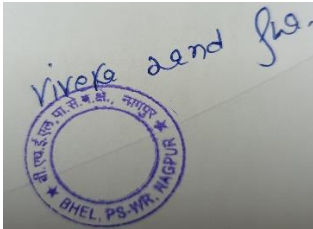 viveka nand Jha.
बी.एच.ई.एल. पा.से.प.क्षे., नागपुर
★ BHEL, PS-WR, NAGPUR ★